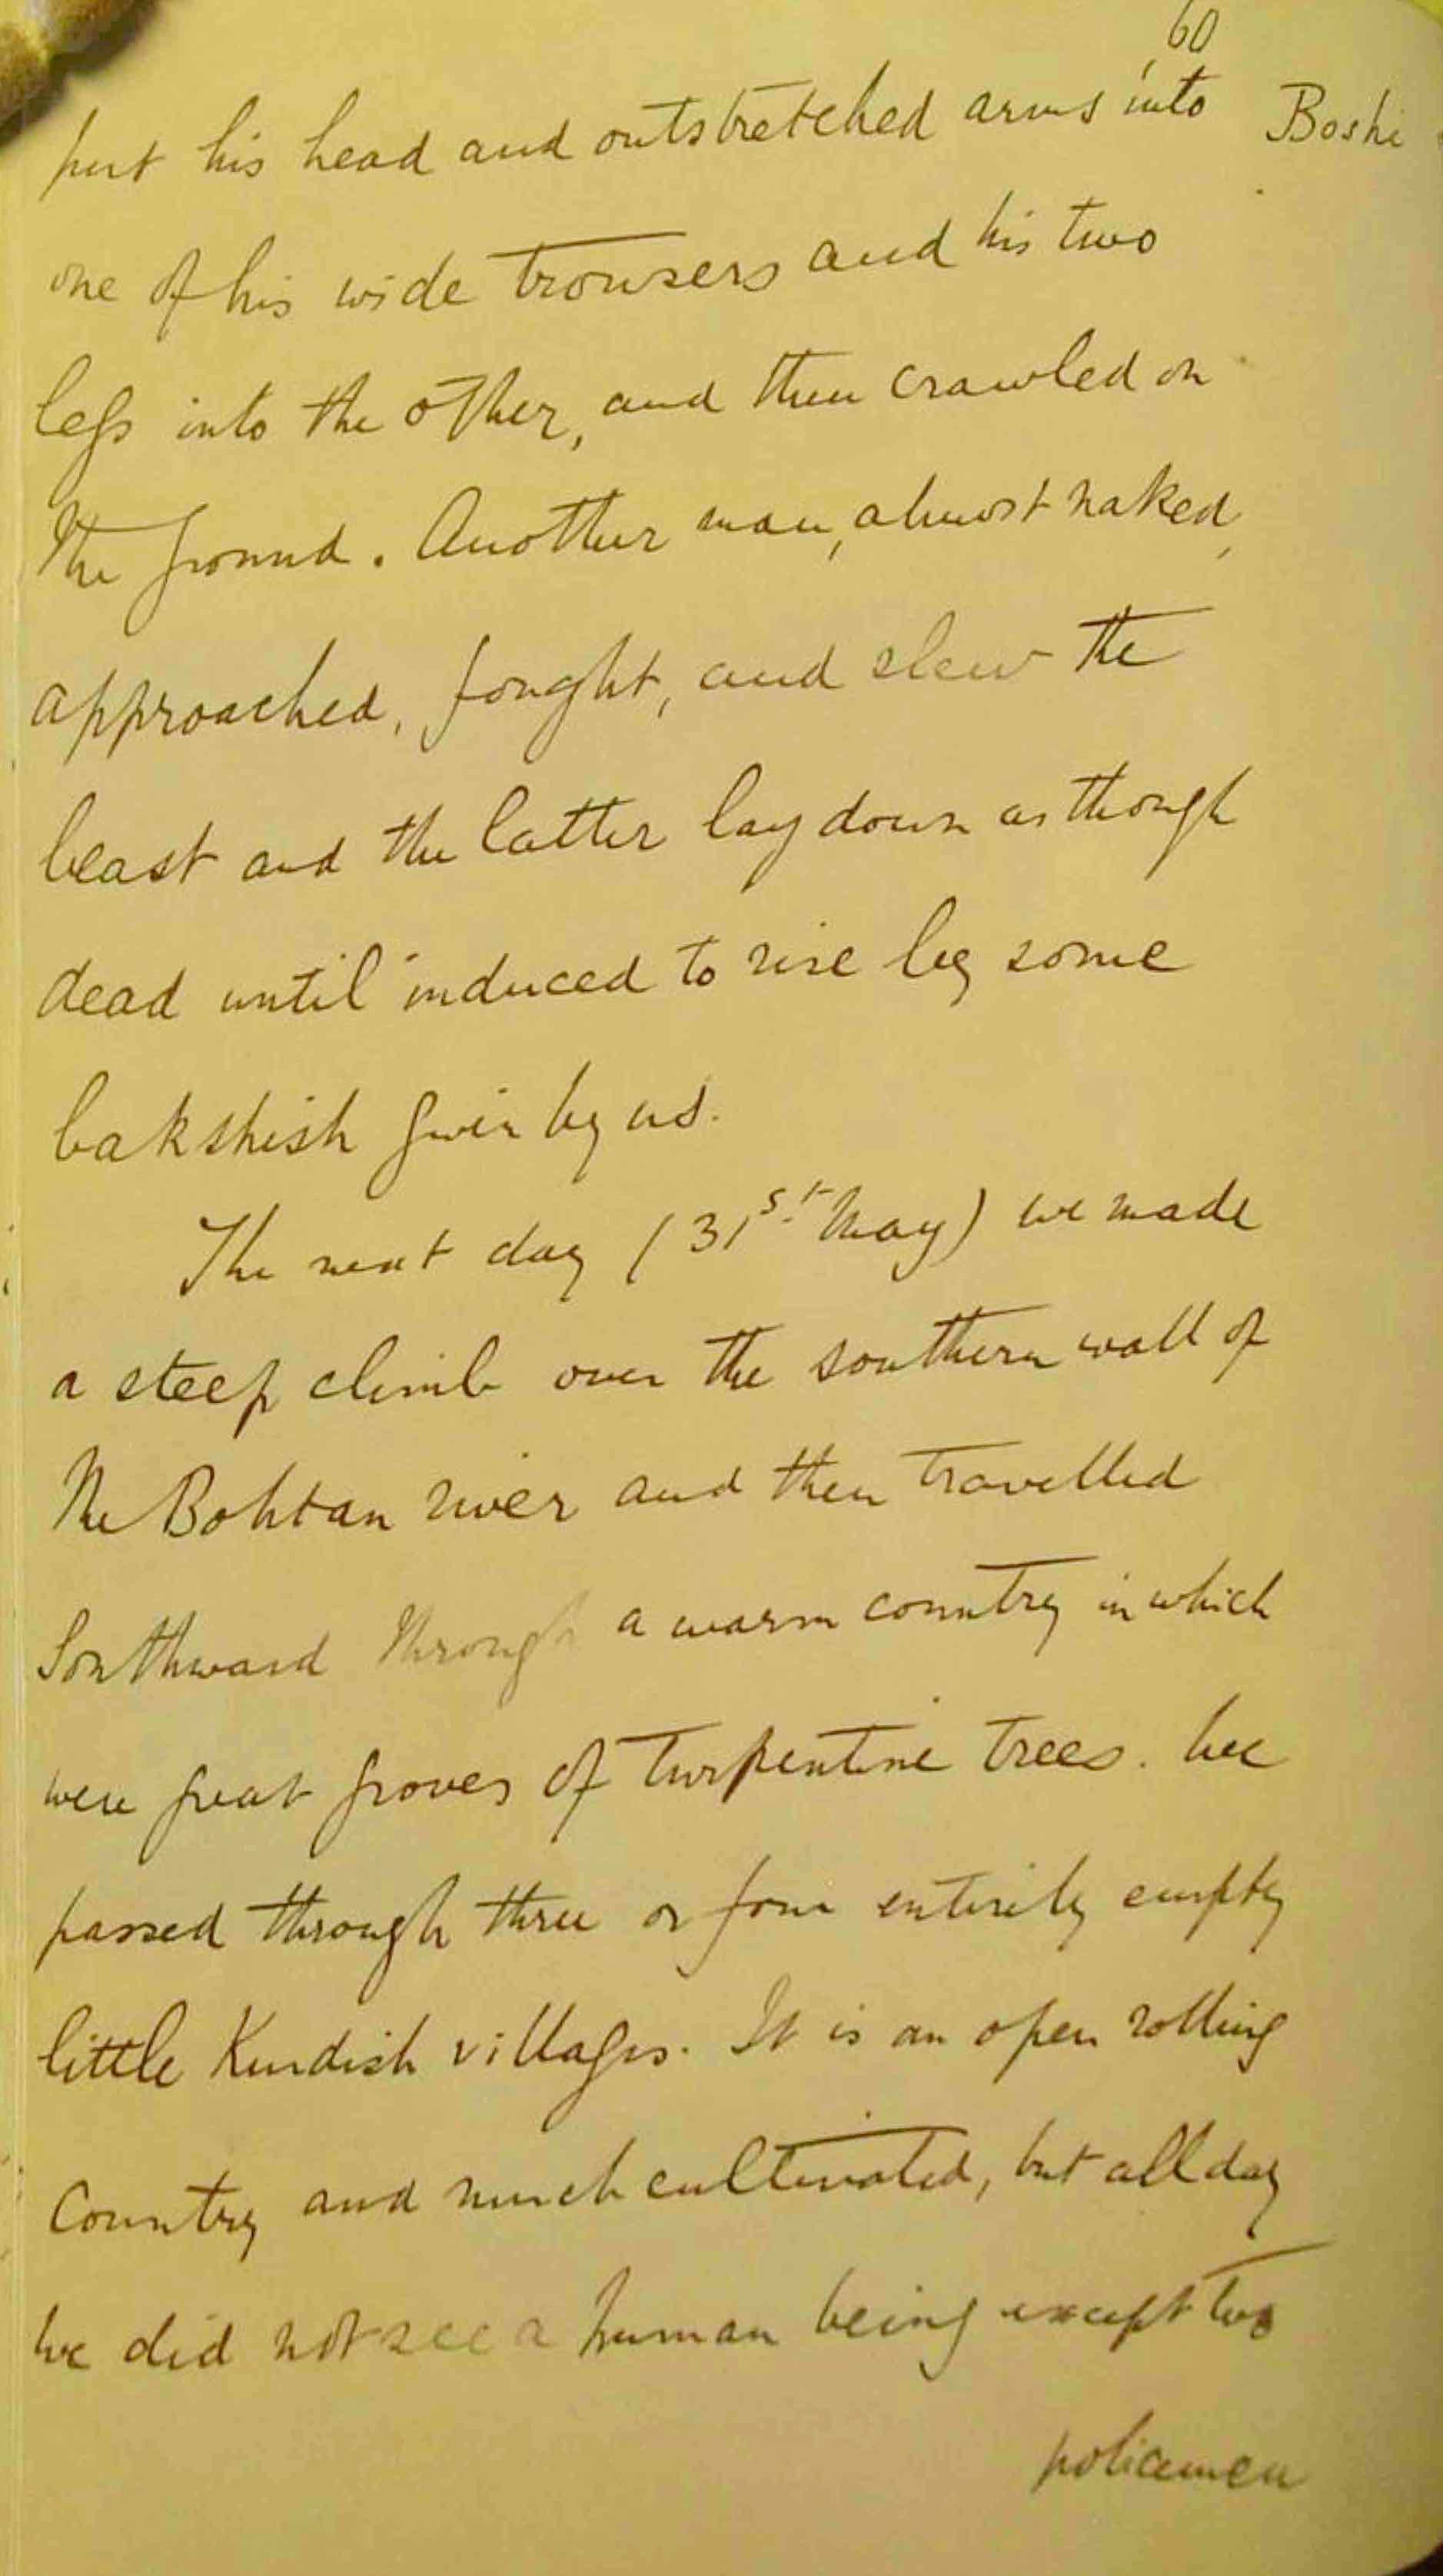 60
put his head and outstretched arms into
Boshi
one of his wide trousers and his two
legs into the other, and then crawled on
the ground. Another man, almost naked,
approached, fought, and slew the
beast and the latter lay down as though
dead until induced to rise by some
bakshish given by us.
The next day (31st May) we made
a steep climb over the southern wall of
the Bohtan river and then travelled
Southward through a warm country in which
were great groves of turpentine trees. We
passed through three or four entirely empty
little Kurdish villages. It is an open rolling
Country and much cultivated, but all day
we did not see a human being except two
policemen